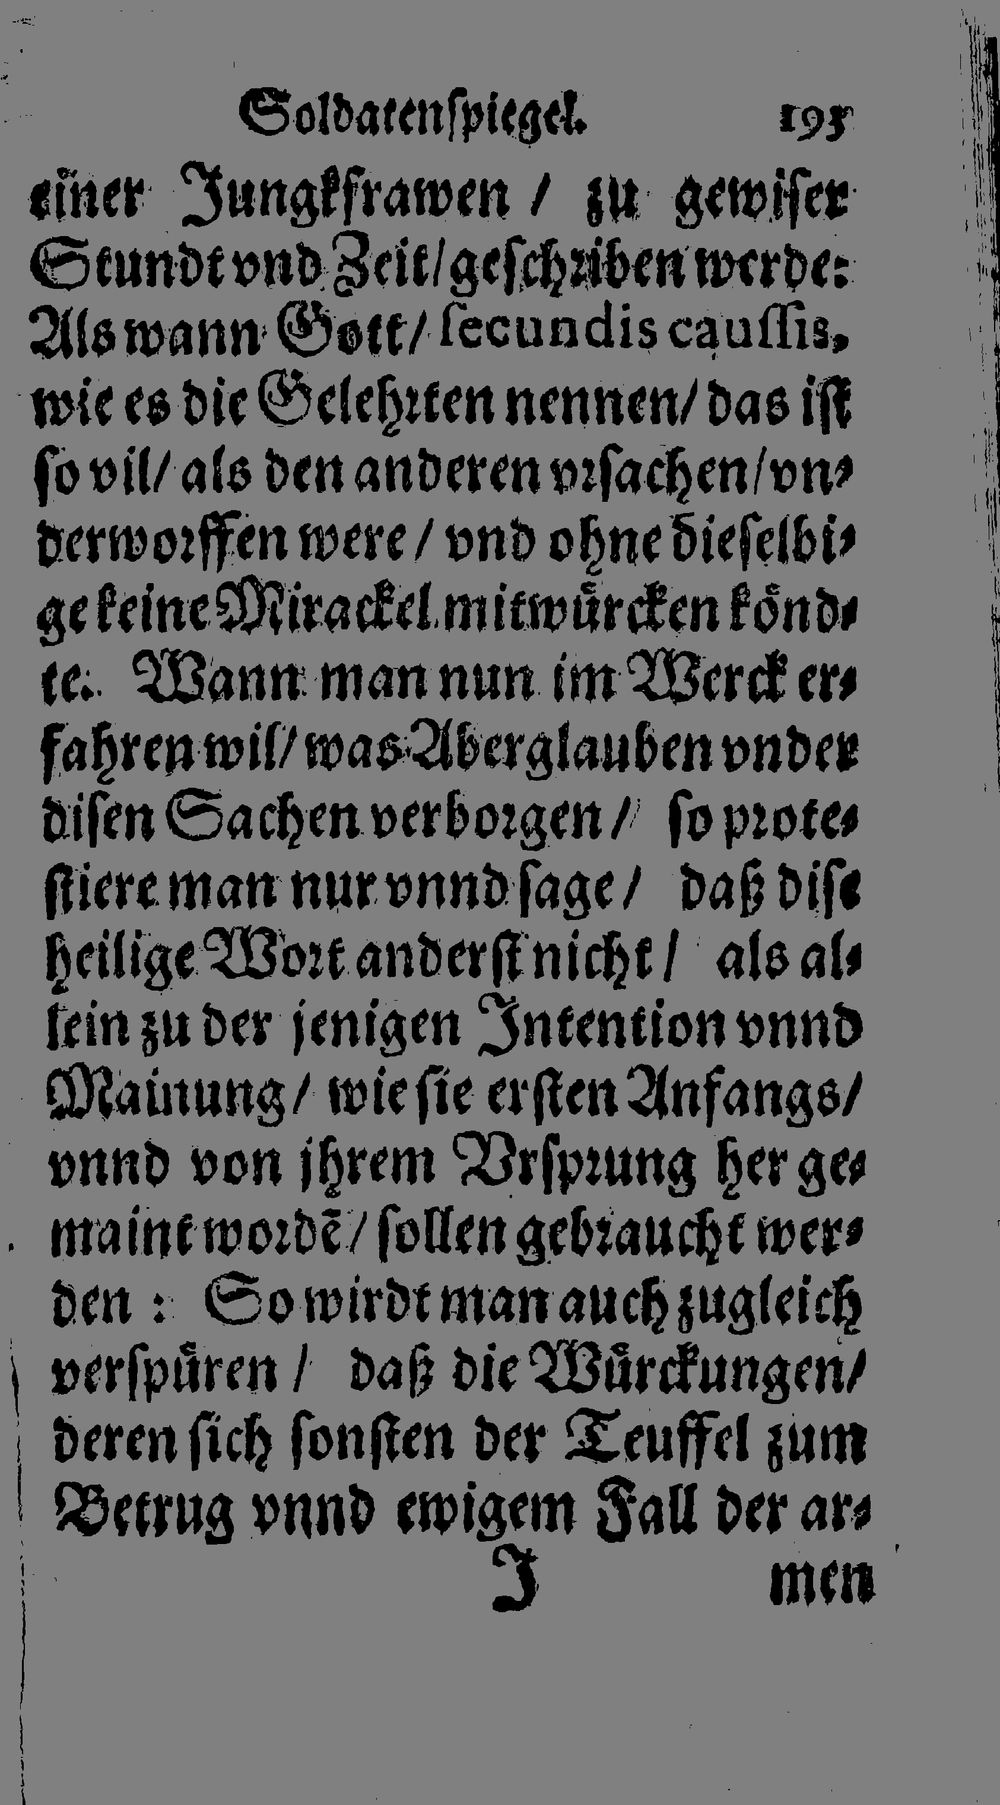 Soldatenspiegel. 195
einer Jungkfrawen / zu gewiser
Stundt vnd Zeit/ geschriben werde:
Als wann Gott/ secundis caussis,
wie es die Gelehrten nennen/ das ist
so vil/ als den anderen vrsachen/ vn-
derworffen were / vnd ohne dieselbi-
ge keine Mirackel mitwürcken könd-
te. Wann man nun im Werck er-
fahren wil/ was Aberglauben vnder
disen Sachen verborgen / so prote-
stiere man nur vnnd sage / daß dise
heilige Wort anderst nicht / als al-
lein zu der jenigen Intention vnnd
Mainung / wie sie ersten Anfangs/
vnnd von jhrem Vrsprung her ge-
maint wordē / sollen gebraucht wer-
den : So wirdt man auch zugleich
verspüren / daß die Würckungen/
deren sich sonsten der Teuffel zum
Betrug vnnd ewigem Fall der ar-
J men